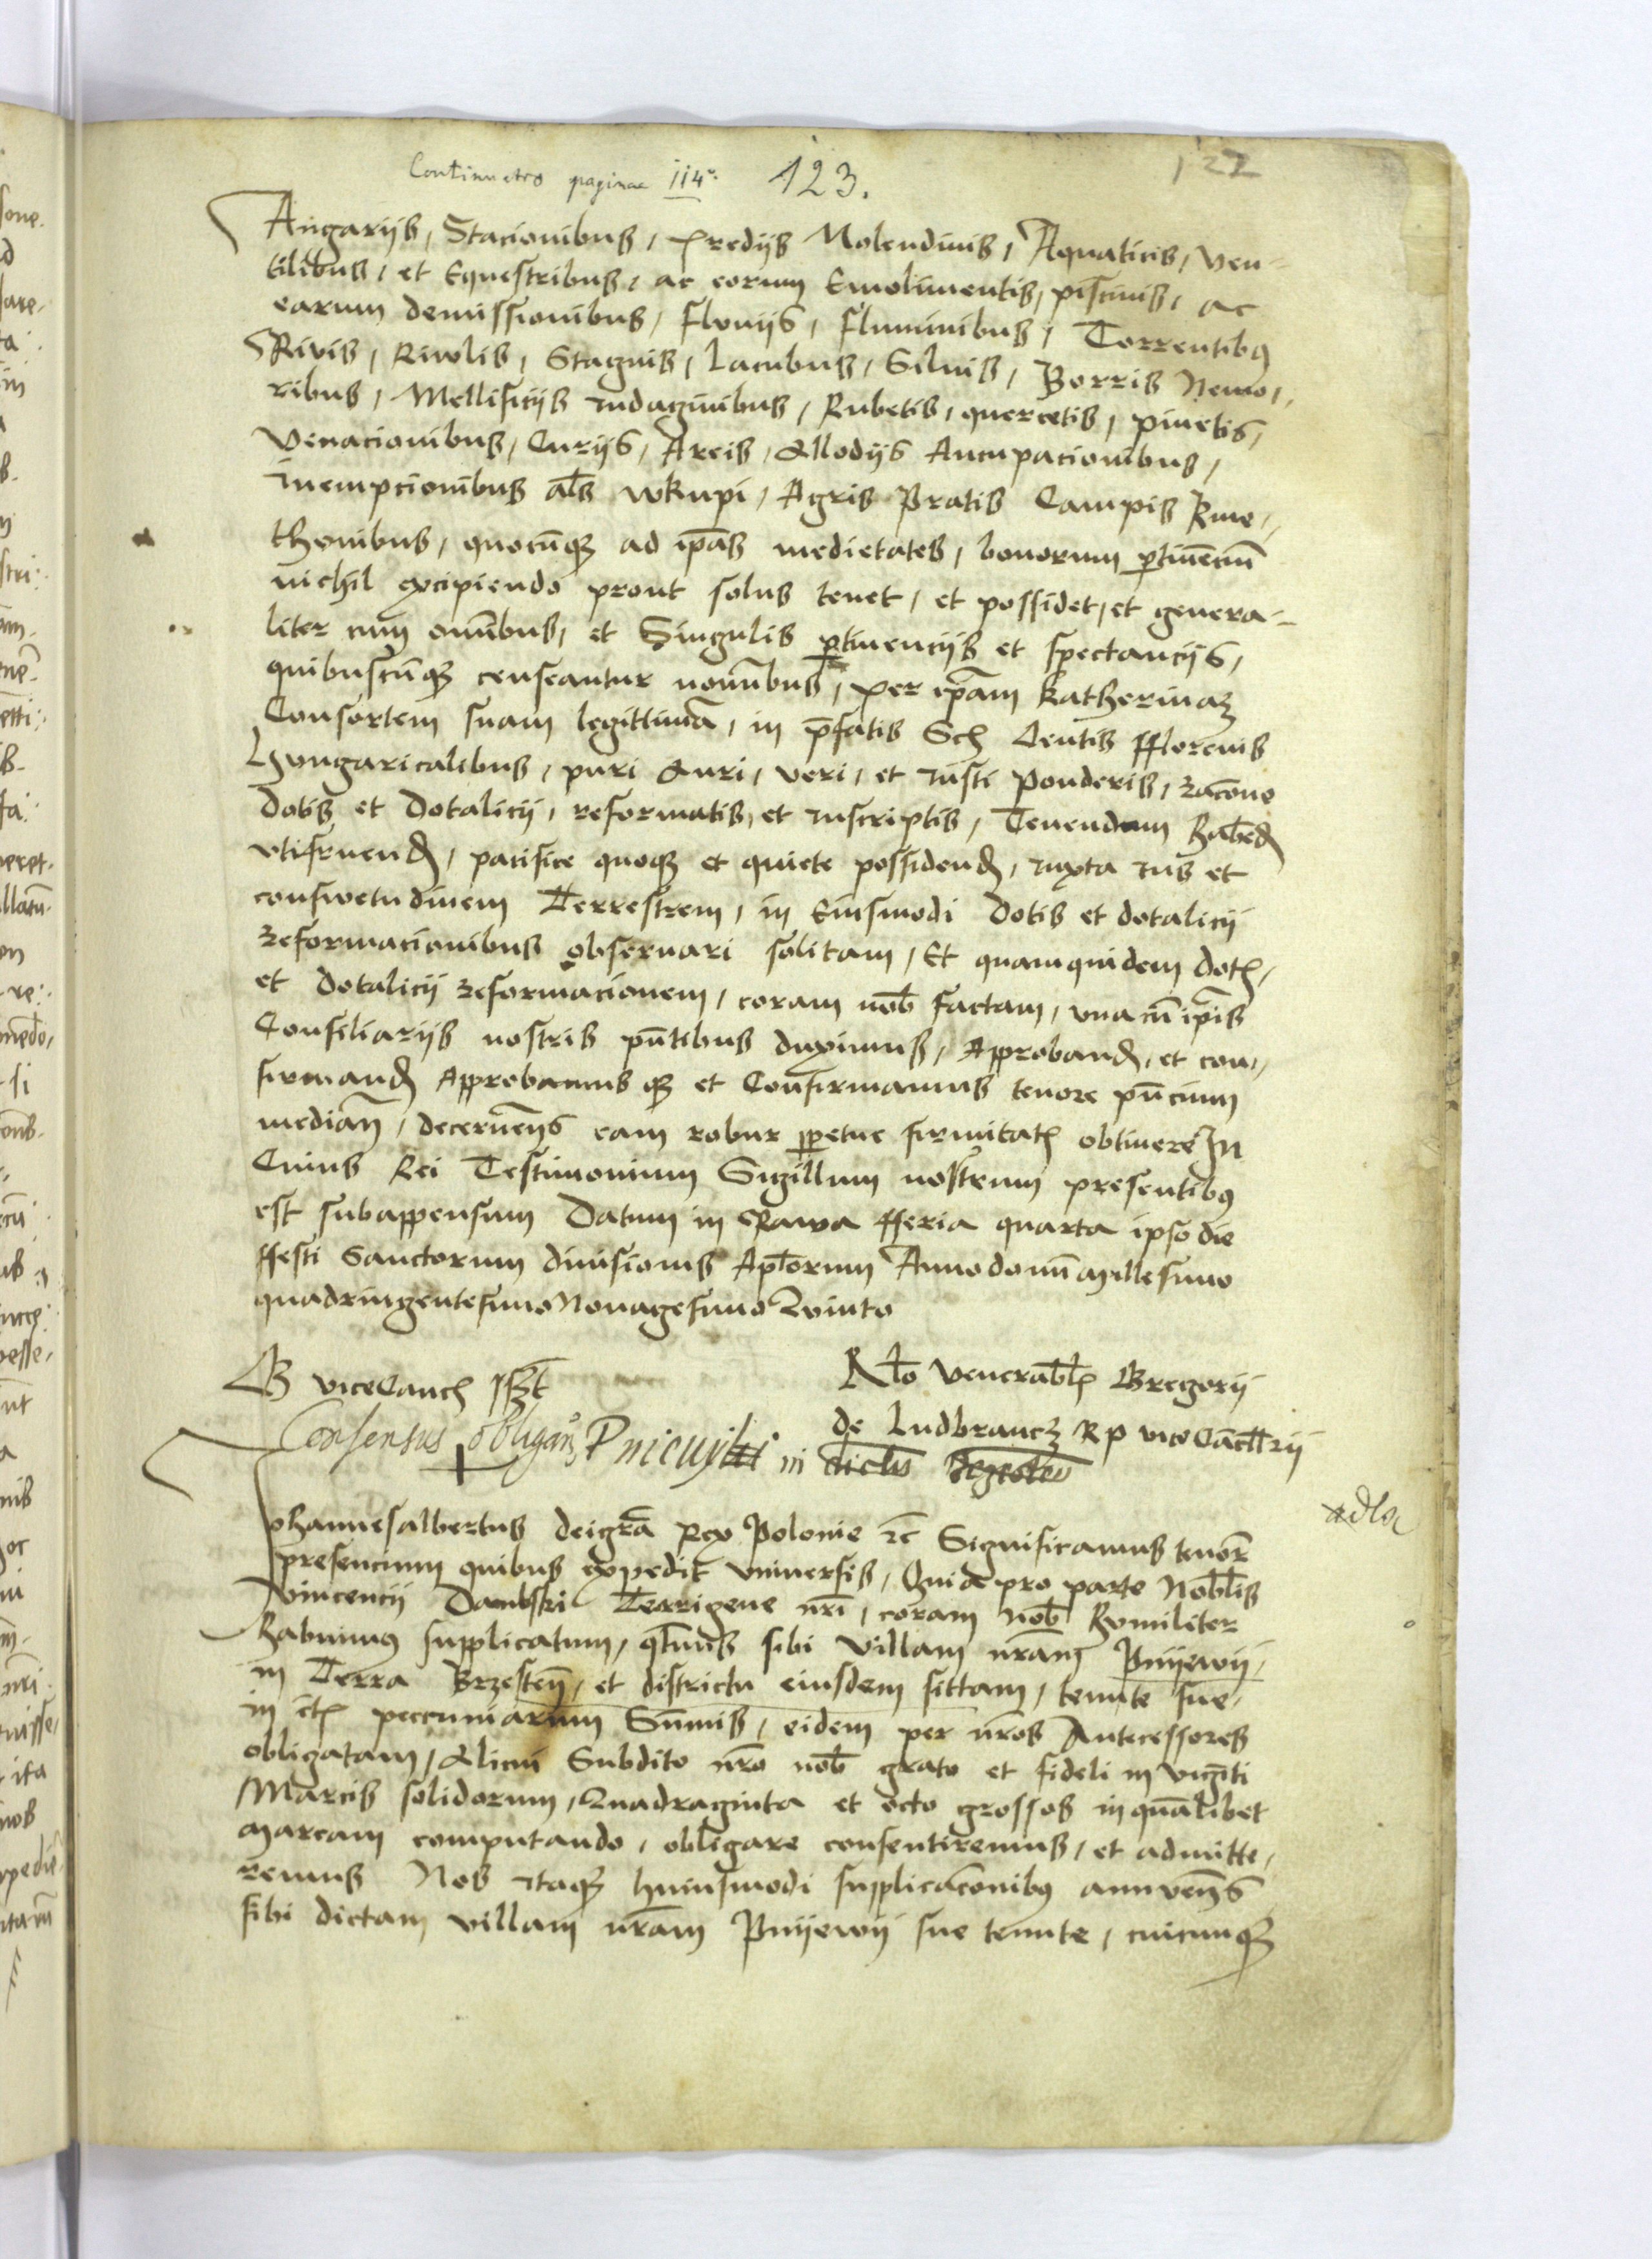 Continuatio paginae 114. 123. 122
Angarijs, Stacionibus, Predijs Molendinis, Aquaticis, Ven-
tilibus, et Equestribus, ac eorum Emolimentis, piscinis, ac
earum demissionibus, Fluvijs, Fluminibus, Torrentibꝫ
Rivis, Riwlis, Stagnis, Lacubus, Siluis, Borris Nemo-
ribus, Mellificijs Indaginibus, Rubetis, quercetis, pinetis,
Venacionibus, Curijs, Areis, Allodijs Aucupacionibus,
Inempcionibus als wkupi, Agris Pratis Campis Kme-
thonibus, quocūqꝫ ad ip̄as medietates, bonorum ꝑtinēciū
nichil excipiendo prout solus tenet, et possidet, et genera-
liter cum omībus, et Singulis ꝑtinencijs et spectancijs,
quibuscūqꝫ censeantur nomībus, per ip̄am Katherinaꝫ
Consortem suam legittimā, in p̄fatis Sex Centis fflorenis
Hungaricalibus, puri Auri, veri, et Iusti Ponderis, rac̄one
Dotis et Dotalicij, reformatis, et Inscriptis, Tenendam Habend
vtifruend, pacifice quoqꝫ et quiete possidend, Iuxta Ius et
conswetudinem Terrestrem, in Eiusmodi Dotis et dotalicij
reformacionibus observari solitam, Et quamquidem Dot
et Dotalicij reformacionem, coram nob̄ factam, vna cū ip̄is
Consiliarijs nostris pn̄tibus duximus, Approband, et con-
firmand Approbamus qꝫ et Confirmamus tenore pn̄cium
median̄, decernen̄s eam robur ꝑpetue firmitat obtinere In
Cuius Rei Testimonium Sigillum nostrum presentibꝫ
est subappensum Datum in Rawa fferia quarta ipso die
ffesti Sanctorum divisionis Apl̄orum Anno domī Millesimo
quadringentesimo Nonagesimo Quinto
G viceCanc sszt
Rlo Venerabl Gregorij
de Ludbrancz RP viceCācllrij
Consensus obligan
Johannesalbertus deigrā Rex Polonie rc Significamus tenor
presencium quibus expedit vniversis, Quia pro parte Nobl̄is
Vincencij Dambski Terrigene nr̄i, coram nob̄ Humiliter
Habuimꝫ supplicatum, qt̄nus sibi Villam nr̄am Pnijewij,
in Terra Brzesten̄, et districtu eiusdem sittam, tenute sue,
in ct peccuniarum Sum̄is, eidem per nr̄os Antecessores
obligatam, Alicui Subdito nr̄o nob̄ grato et fideli in viginti
Marcis solidorum, Quadraginta et octo grossos in quālibet
Marcam computando, obligare consentiremus, et admitte-
remus Nos Itaqꝫ huiusmodi supplicac̄onibꝫ annuen̄s
sibi dictam villam nr̄am Pnijewij sue tenute, cuicumqꝫ